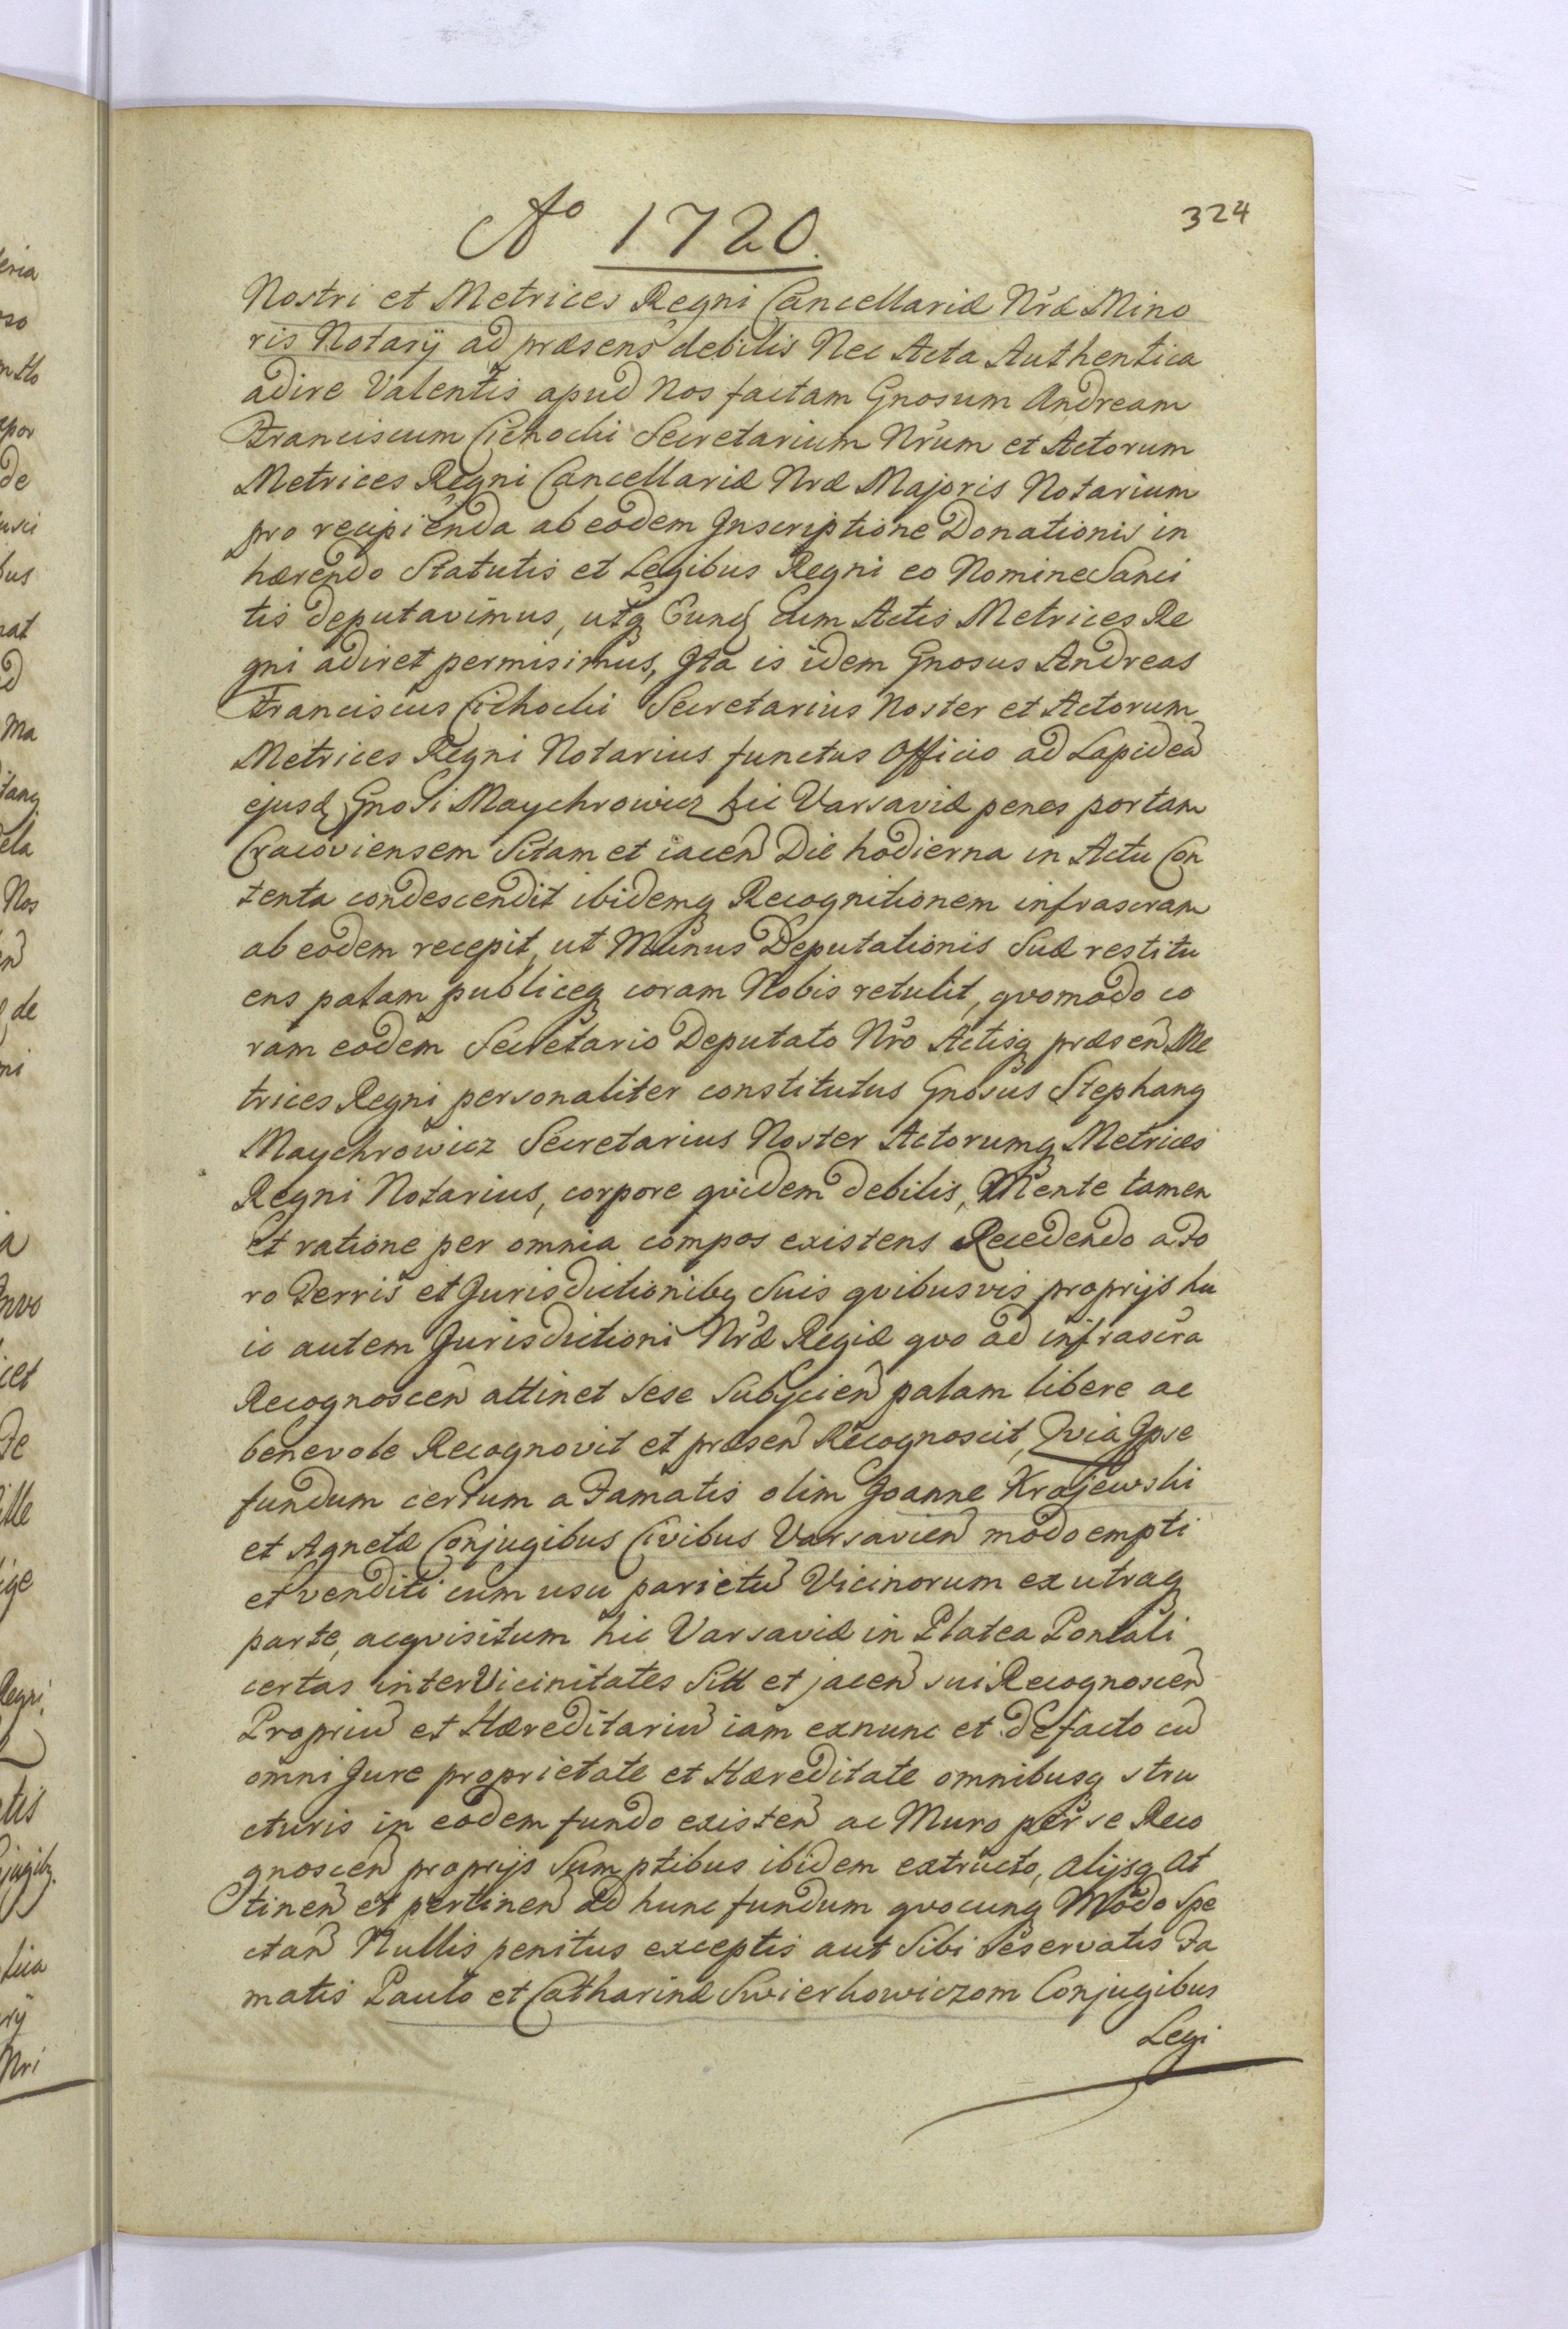 324
Aº 1720.
Nostri et Metrices Regni Cancellariæ Nræ Mino
ris Notarÿ ad præsens debilis Nec Acta Authentica
adire Valentis apud Nos factam Gnosum Andream
Franciscum Cichocki Secretarium Nrum et Actorum
Metrices Regni Cancellariæ Nræ Majoris Notarium
pro recipienda ab eodem Inscriptione Donationis in
hærendo Statutis et Legibus Regni eo Nomine Sanci
tis deputavimus, utq Eunq cum Actis Metrices Re
gni adiret permisimus, Ita is idem Gnosus Andreas
Franciscus Cichocki Secretarius Noster et Actorum
Metrices Regni Notarius functus Officio ad Lapideã
ejusd Gnosi Maychrowicz hic Varsaviæ penes portam
Cracoviensem Sitam et iaceñ Die hodierna in Actu Con
tenta condescendit ibidemq Recognitionem infrascram
ab eodem recepit, ut Munus Deputationis Suæ restitu
ens palam publiceq coram Nobis retulit, qvomodo co
ram eodem Secretario Deputato Nro Actisq præseñ Me
trices Regni personaliter constitutus Gnosus Stephanq
Maychrowicz Secretarius Noster Actorumq Metrices
Regni Notarius, corpore qvidem debilis, Mente tamen
et ratione per omnia compos existens Recedendo a Fo
ro Terris et Jurisdictionibq Suis qvibusvis proprijs hu
ic autem Jurisdictioni Nræ Regiæ qvo ad infrascra
Recognosceñ attinet Sese Subijcieñ palam libere ac
benevole Recognovit et præseñ Recognoscit, Qvia Ipse
fundum certum a Famatis olim Joanne Krajewski
et Agnetæ Conjugibus Civibus Varsavieñ modo empti
et venditi cum usu parietũ Vicinorum ex utraq
parte, acqvisitum hic Varsaviæ in Platea Pontali
certas inter Vicinitates Sitt et jaceñ sui Recognosceñ
Propriũ et Hæreditariũ iam exnunc et de facto cũ
omni Jure proprietate et Hæreditate omnibusq stru
cturis in eodem fundo existeñ ac Muro per se Reco
gnosceñ proprijs Sumptibus ibidem extructo, alijsq At
tineñ et pertineñ ad hunc fundum qvocunq Modo Spe
ctañ Nullis penitus exceptis aut Sibi reservatis Fa
matis Paulo et Catharinæ Swierkowiczom Conjugibus
Legi